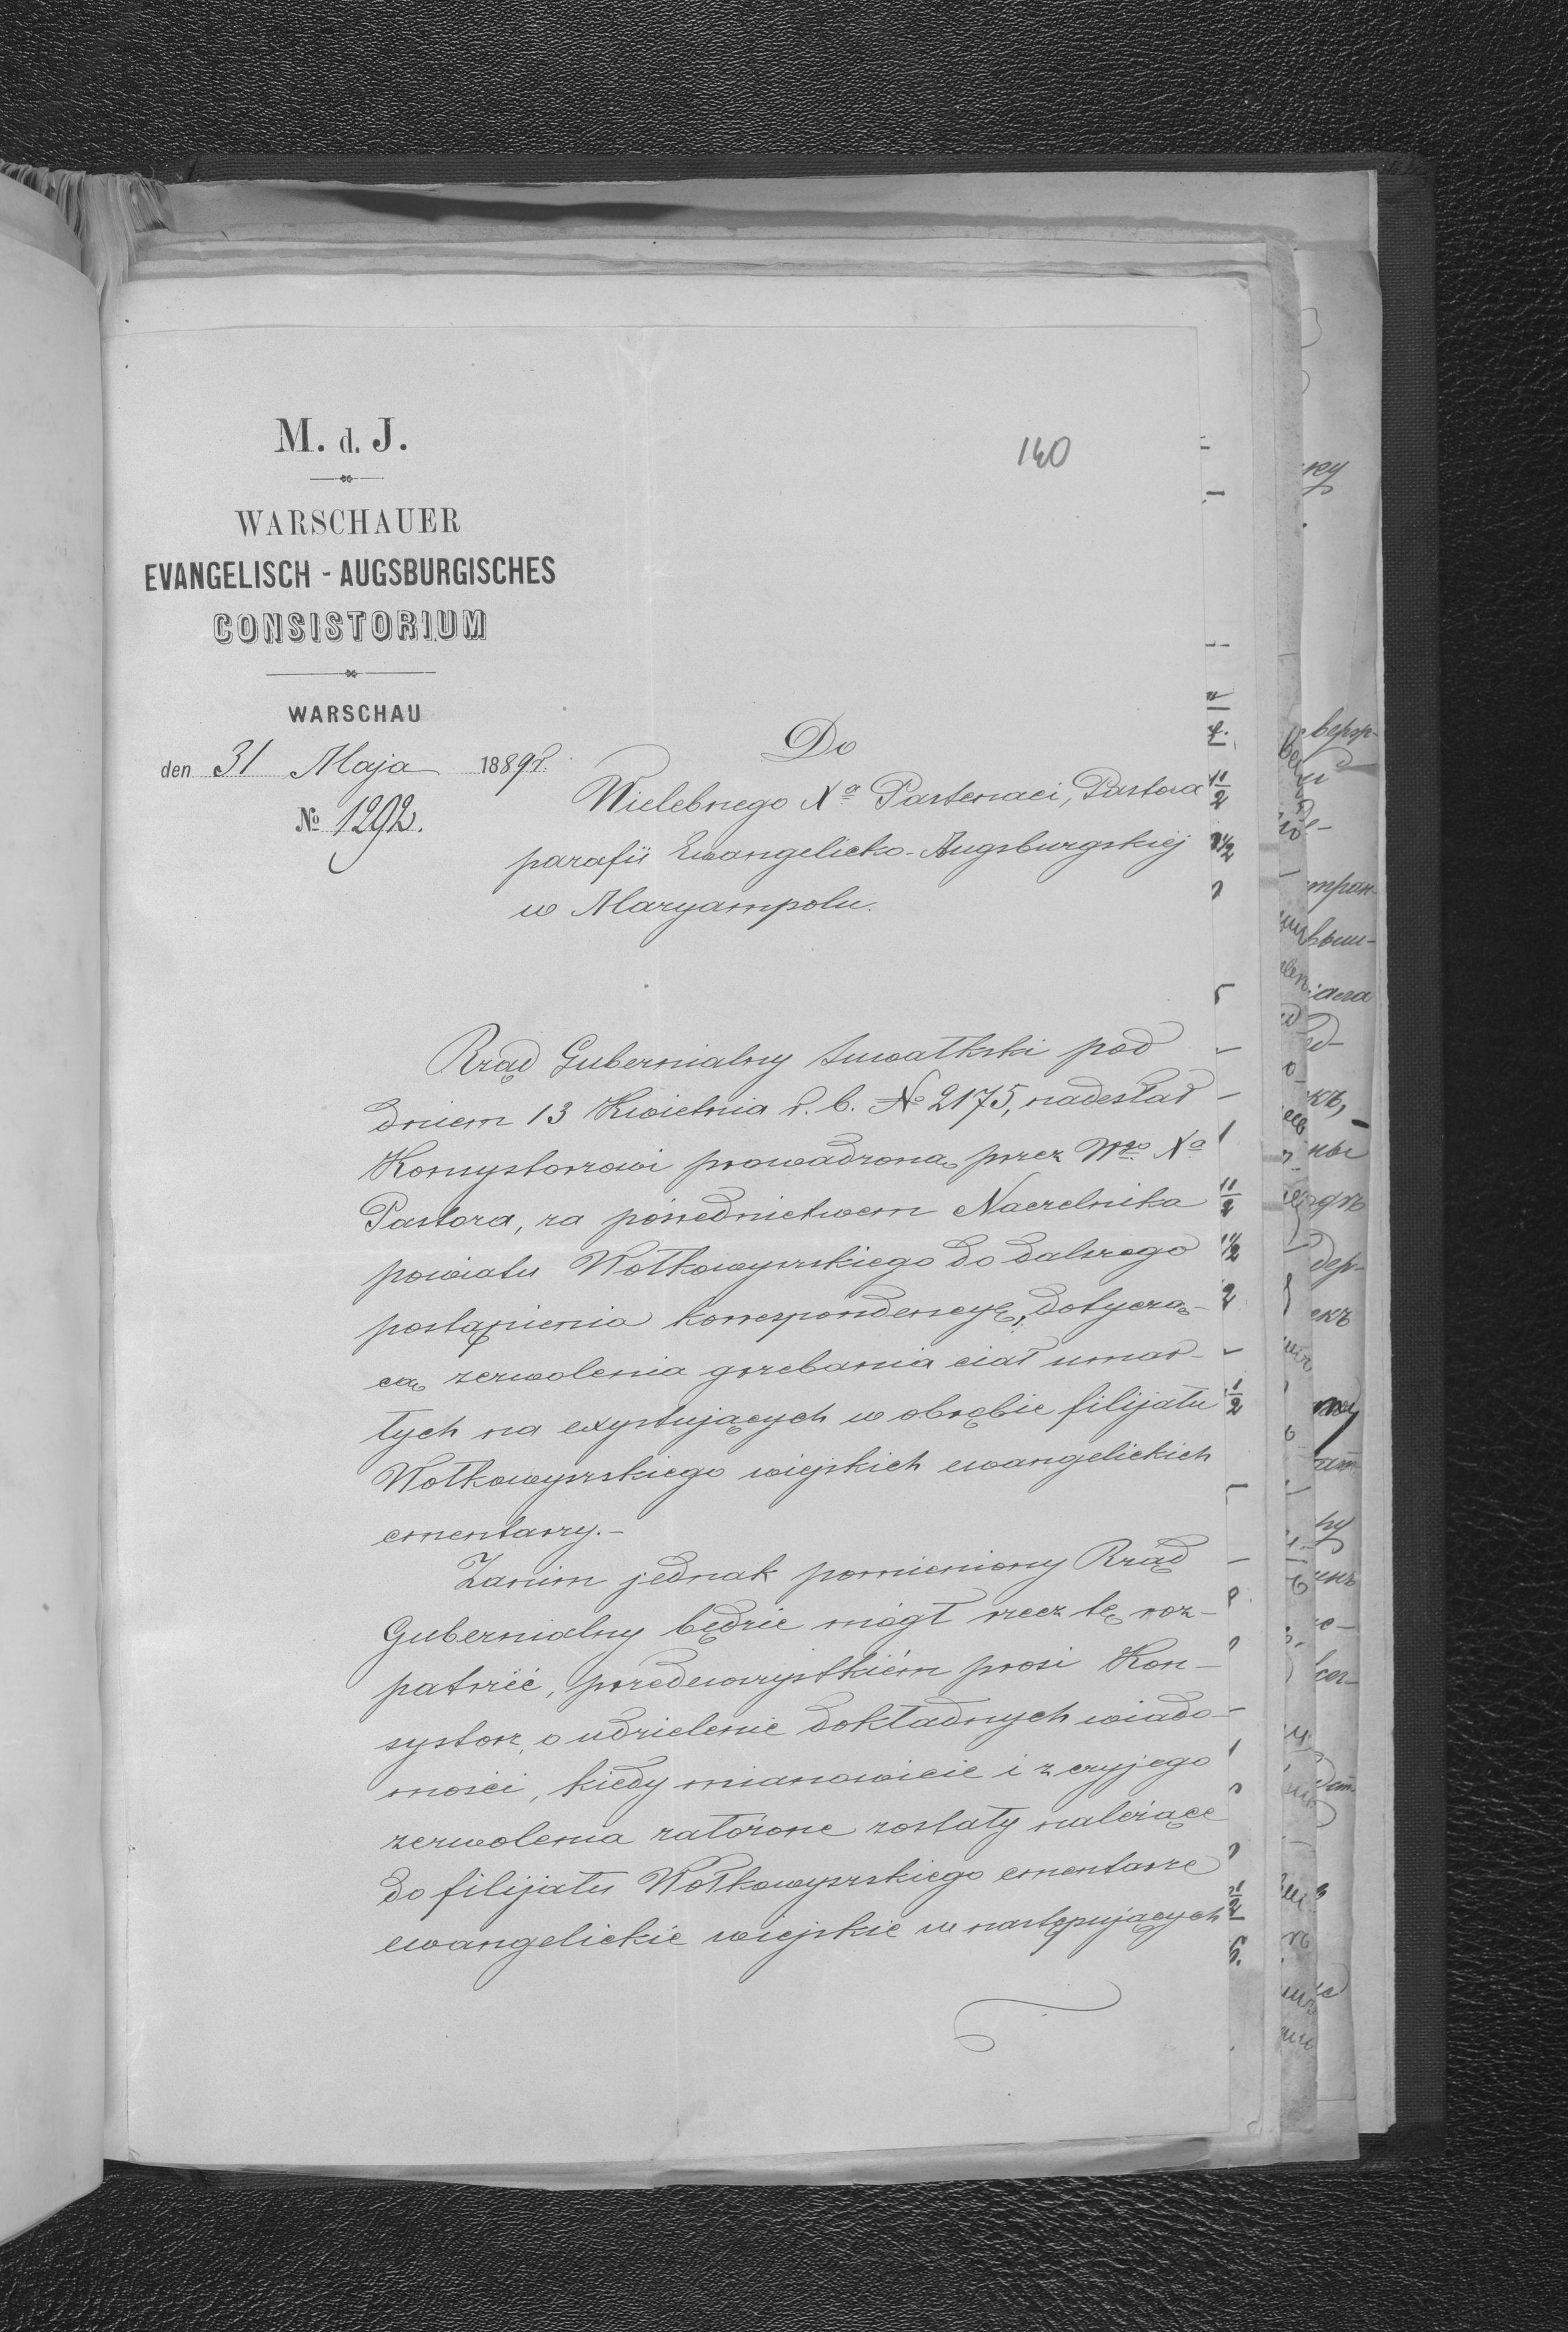 M. d. J.
140
WARSCHAUER
EVANGELISCH - AUGSBURGISCHES
CONSISTORIUM
WARSCHAU
den 31 Maja 1889 r.
№ 1292.
Do
Wielebnego Xa Pastenaci, Pastora
parafii Ewangelicko-Augsburgskiej
w Maryampolu.
Rząd Gubernialny Suwałkski pod
dniem 13 Kwietnia r. b. № 2175, nadesłał
Konsystorzowi prowadzoną przez Wgo Xa
Pastora, za pośrednictwem Naczelnika
powiatu Wołkowyszkiego do dalszego
postąpienia korrespondencyę, dotycza-
cą zezwolenia grzebania ciał umar-
łych na exystujących w obrębie filijału
Wołkowyszskiego wiejskich ewangelickich
cmentarzy.-
Zanim jednak pomieniony Rząd
Gubernialny będzie mógł rzecz tę roz-
patrzić, przedewszystkiém prosi Kon-
systorz, o udzielenie dokładnych wiado-
mości, kiedy mianowicie i z czyjego
zezwolenia założone zostały należące
do filijału Wołkowyszskiego cmentarze
ewangelickie wiejskie w następujących